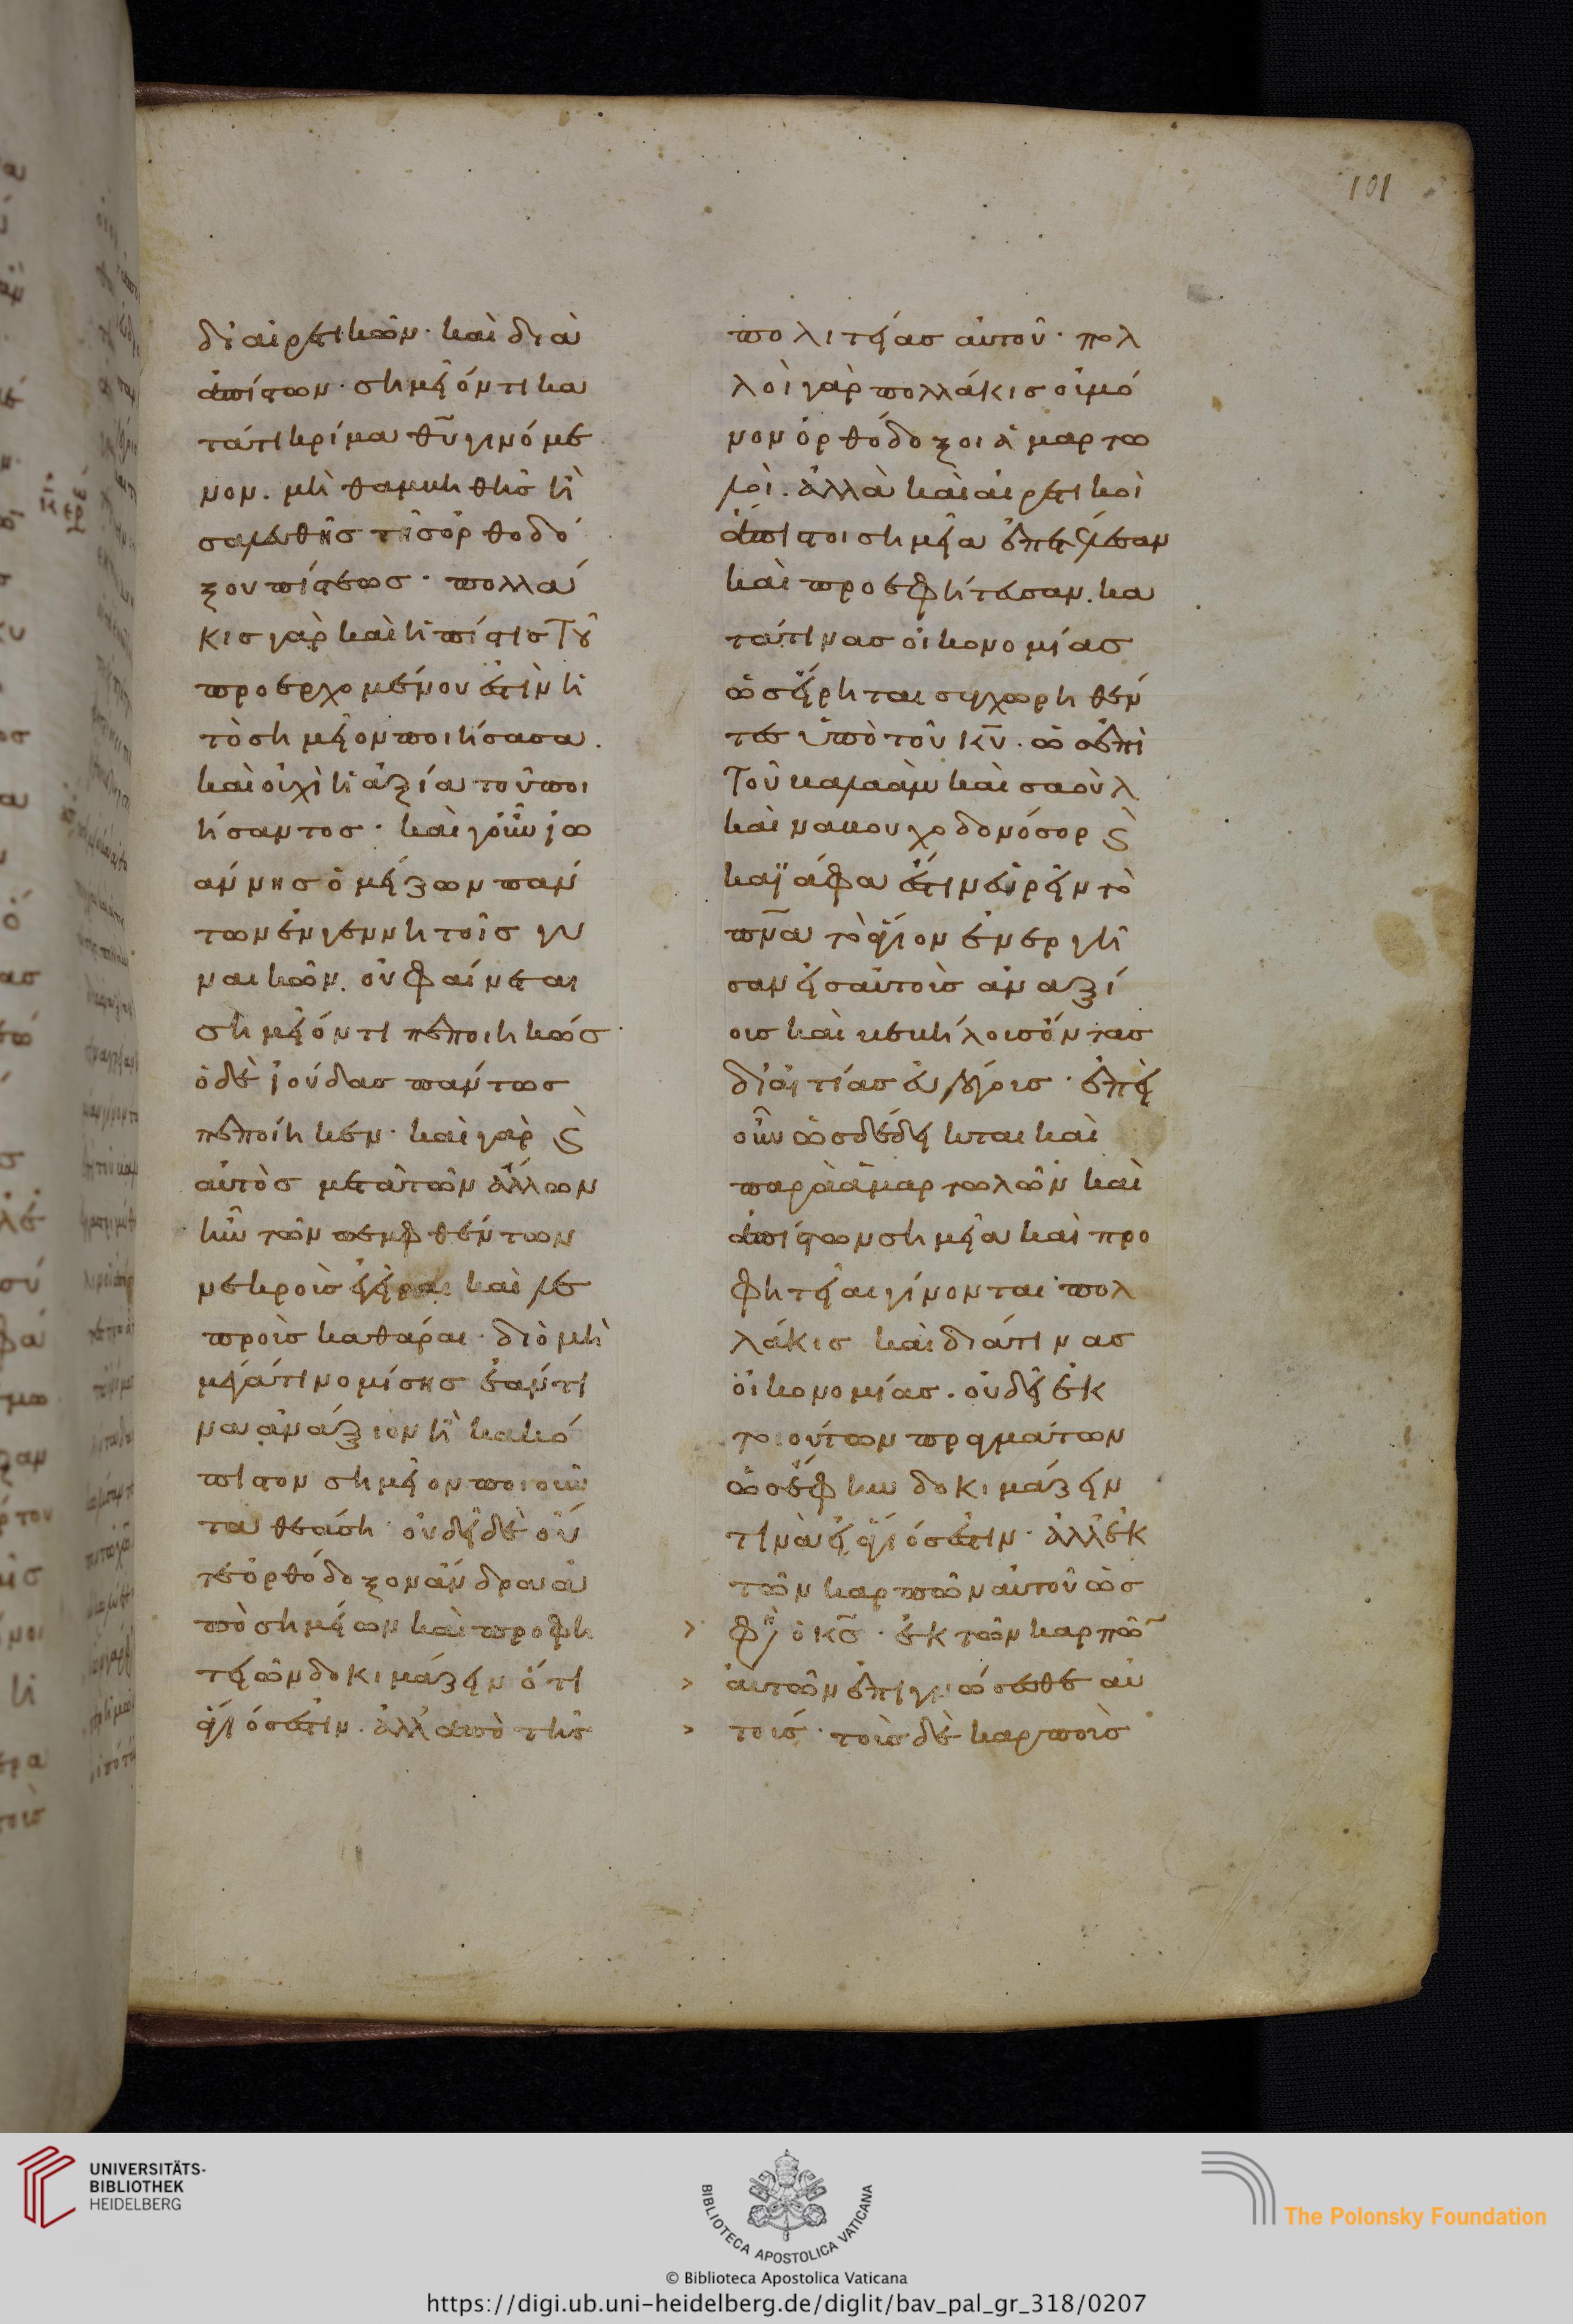 101
δι αἱρετικῶν· καὶ διὰ
ἀπίστων· σημεῖόν τι κα
τά τι κρίμα θ̅υ̅ γινόμε
νον. μὴ θαμβηθῇς ἢ
σαλευθῇς τῆς ὀρθοδό
ξου πίστεως· πολλά
κις γὰρ καὶ ἡ πίστις τοῦ
προσερχομένου ἐστὶν ἡ
τὸ σημεῖον ποιήσασα.
καὶ οὐχὶ ἡ ἀξία τοῦ ποι
ήσαντος· καὶ γοῦν ἰω
άννης ὁ μείζων πάν
των ἐν γεννητοῖς γυ
ναικῶν. οὐ φαίνεται
σημεῖόν τι πεποιηκώς
ὁ δὲ ἰούδας πάντως
πεποίηκεν· καὶ γὰρ ϛ
αὐτὸς μετὰ τῶν ἄλλων
ἦν τῶν πεμφθέντων
νεκροὺς ἐγεῖραι καὶ λε
προὺς καθάραι· διὸ μὴ
μέγα τι νομίσῃς ἐάν τι
να ἀνάξιον ἢ κακό
πιστον σημεῖον ποιοῦν
τα θεάσῃ· οὐ δεῖ δὲ οὔ
τε ὀρθόδοξον ἄνδρα ἀ
πὸ σημείων καὶ προφη
τειῶν δοκιμάζειν ὅτι
ἅγιός ἐστιν. ἀλλ' ἀπὸ τῆς
πολιτείας αὐτοῦ· πολ
λοὶ γὰρ πολλάκις οὐ μό
νον ὀρθόδοξοι ἁμαρτω
λοὶ. ἀλλὰ καὶ αἱρετικοὶ
ἄπιστοι σημεῖα ἐπετέλεσαν
καὶ προεφήτευσαν. κα
τά τινας οἰκονομίας
ὡς εἴρηται συγχωρηθέν
τες ὑπὸ τοῦ κ̅υ̅. ὡς ἐπὶ
τοῦ βαλαὰμ καὶ σαοὺλ
καὶ ναβουχοδονόσορ ϛ
καϊάφα ἔστιν εὑρεῖν τὸ
π̅ν̅α̅ τὸ ἅγιον ἐνεργῆ
σαν εἰς αὐτοὺς ἀναξί
ους καὶ βεβήλους ὄντας
δι' αἰτίας εὐλόγους· ἐπεὶ
οὖν ὡς δέδεικται καὶ
παρὰ ἁμαρτωλῶν καὶ
ἀπίστων σημεῖα καὶ προ
φητεῖαι γίνονται πολ
λάκις καὶ διά τινας
οἰκονομίας. οὐ δεῖ ἐκ
τοιούτων πραγμάτων
ὡς ἔφην δοκιμάζειν
τινὰ εἰ ἅγιός ἐστιν· ἀλλ' ἐκ
τῶν καρπῶν αὐτοῦ ὥς
φη ὁ κ̅ς̅· ἐκ τῶν καρπῶ̅
αὐτῶν ἐπιγνώσεσθε αὐ
τούς· τοὺς δὲ καρποὺς
UNIVERSITÄTS-
BIBLIOTHEK
HEIDELBERG
BIBLIOTECA APOSTOLICA VATICANA
The Polonsky Foundation
© Biblioteca Apostolica Vaticana
https://digi.ub.uni-heidelberg.de/diglit/bav_pal_gr_318/0207